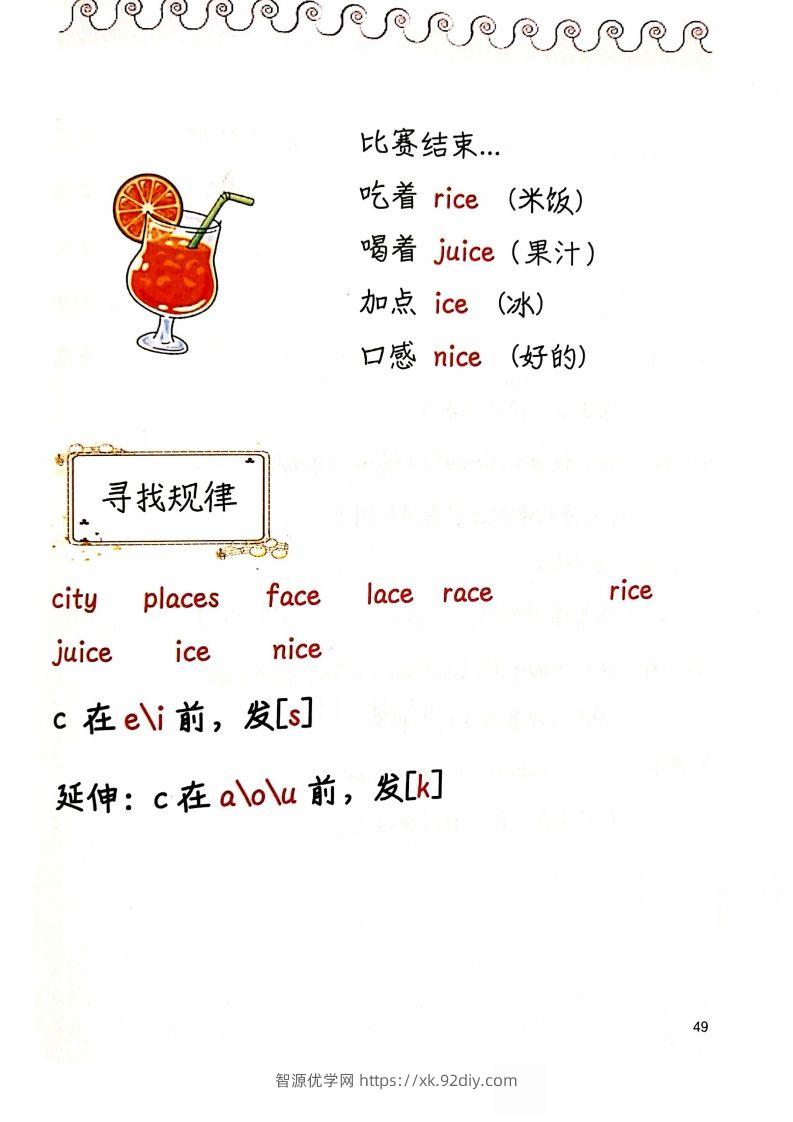 比赛结束...
吃着 rice （米饭）
喝着 juice（果汁）
加点 ice （冰）
口感 nice （好的）
寻找规律
city places face lace race rice
juice ice nice
c 在 e\i 前，发[s]
延伸：c 在 a\o\u 前，发[k]
49
智源优学网 https://xk.92diy.com